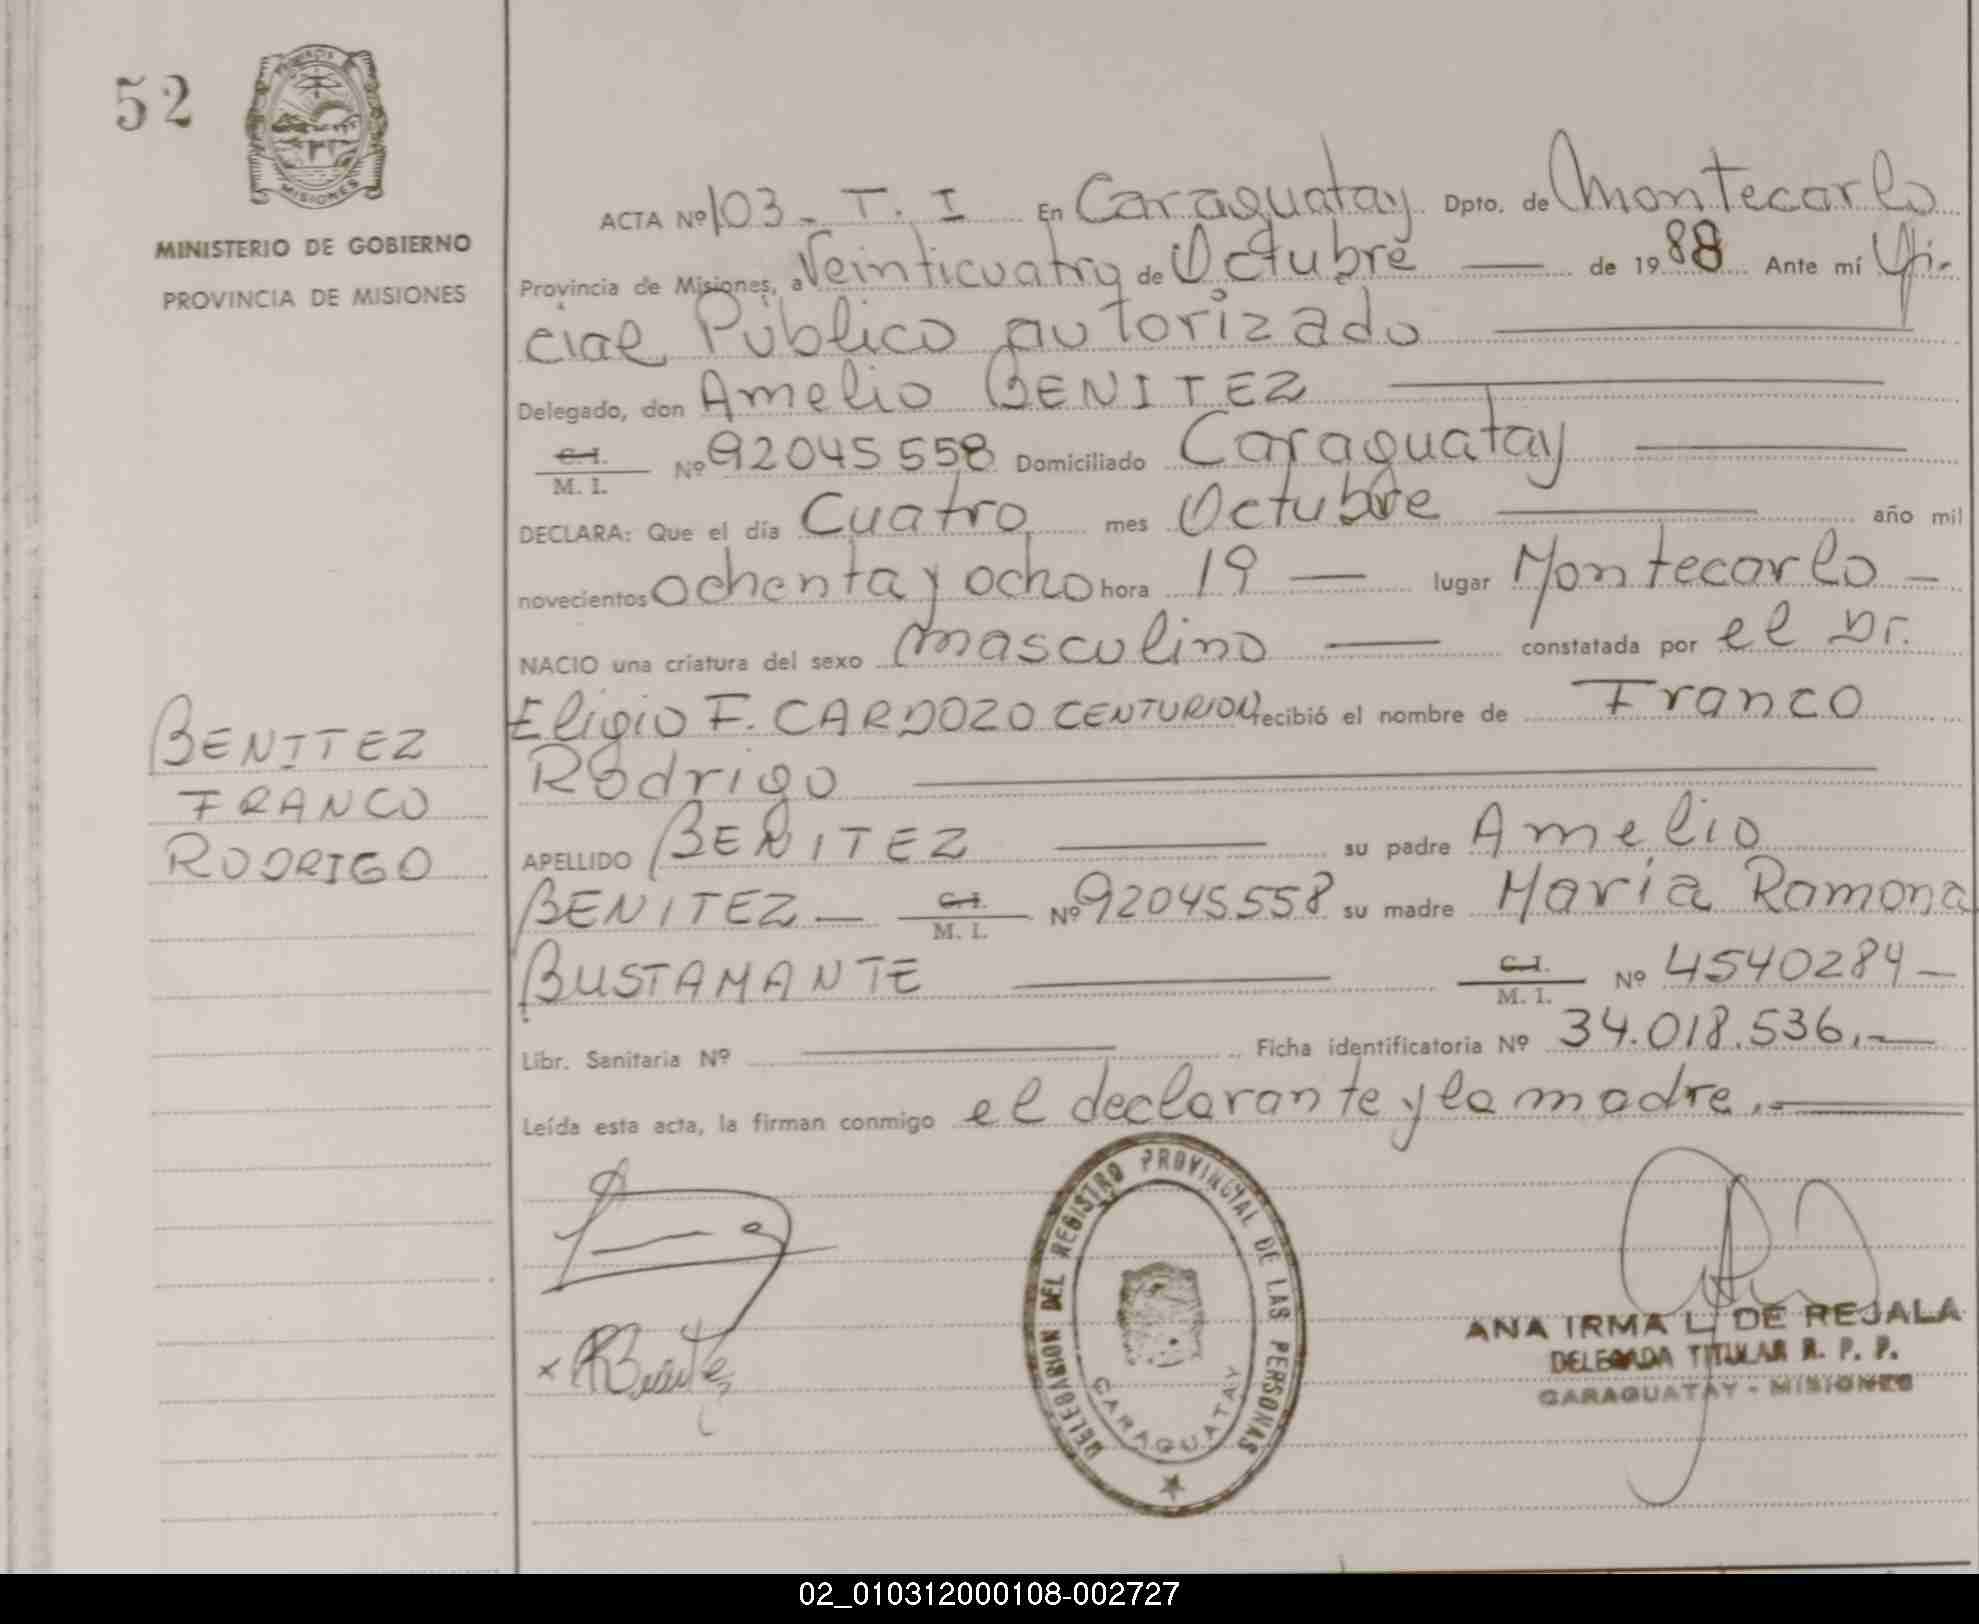 52
PROVINCIA DE
MISIONES
MINISTERIO DE GOBIERNO
PROVINCIA DE MISIONES
BENITEZ
FRANCO
RODRIGO
ACTA Nº 103 - T. I En Caraguatay Dpto. de Montecarlo
Provincia de Misiones, a Veinticuatro de Octubre — de 1988 Ante mí Ofi-
cial Público autorizado
Delegado, don Amelio BENITEZ
C. I.
M. I. Nº 92045558 Domiciliado Caraguatay
DECLARA: Que el día Cuatro mes Octubre año mil
novecientos ochenta y ocho hora 19 — lugar Montecarlo —
NACIO una criatura del sexo masculino — constatada por el Dr.
Eligio F. CARDOZO CENTURION recibió el nombre de Franco
Rodrigo
APELLIDO BENITEZ su padre Amelio
BENITEZ — C. I. M. I. Nº 92045558 su madre María Ramona
BUSTAMANTE C. I. M. I. Nº 4540284 —
Libr. Sanitaria Nº — Ficha identificatoria Nº 34.018.536.-
Leída esta acta, la firman conmigo el declarante y la madre.-
DELEGACION DEL REGISTRO PROVINCIAL DE LAS PERSONAS
CARAGUATAY
ANA IRMA L. DE REJALA
DELEGADA TITULAR R. P. P.
CARAGUATAY - MISIONES
02_010312000108-002727